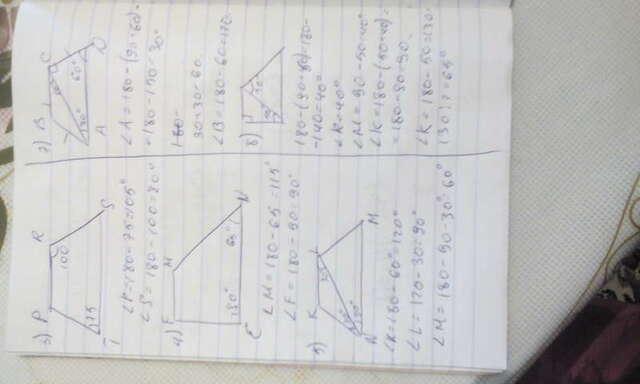 3)
P R
100
75
T S
∠P=180-75=105°
∠S=180-100=80°
4)
F M
90°
65°
C N
∠M=180-65=115°
∠F=180-90=90°
5)
K L
30°
30°
N M
∠K=180-60°=120°
∠L=120-30=90°
∠M=180-90-30=60°
7)
B C
90
60°
30°
A D
∠A=180-(90+60)=
=180-150=30°
30+30=60
∠B=180-60=120
8)
180-(90+50)=180-
-140=40°
∠K=40°
∠M=90-50=40°
∠K=180-(50+40)=
=180-90=90.
∠K=180-50=130
130:2=65°